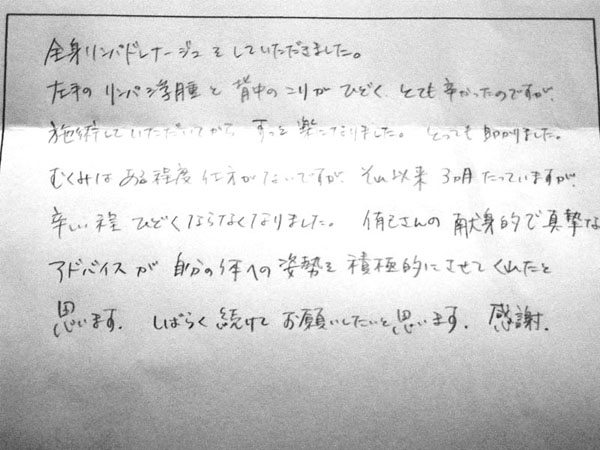 全身リンパドレナージュをしていただきました。
左手のリンパ浮腫と背中のこりがひどく、とても辛かったのですが、
施術していただいてから、ずっと楽になりました。とっても助かりました。
むくみはある程度仕方がないですが、それ以来3ヵ月たっていますが、
辛い程ひどくならなくなりました。 さんの献身的で真摯な
アドバイスが自分の体への姿勢を積極的にさせてくれたと
思います。しばらく続けてお願いしたいと思います。感謝.